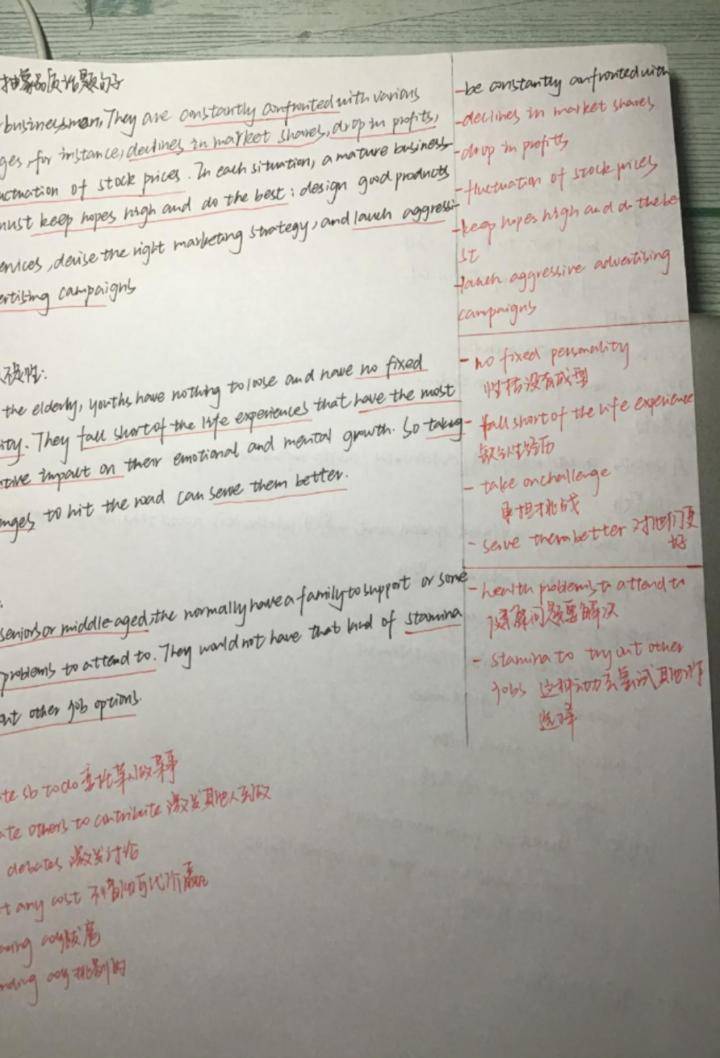 抽象品质话题句子
businessman, They are constantly confronted with various
ges, for instance, declines in market shares, drop in profits,
uctuation of stock prices. In each situation, a mature business
must keep hopes high and do the best: design good products
ervices, devise the right marketing strategy, and lauch aggressi-
ertising campaigns
the elderly, youths have nothing to loose and have no fixed
ity. They fall short of the life experiences that have the most
tive impact on their emotional and mental growth. So taking
enges to hit the road can serve them better.
seniors or middle aged, the normally have a family to support or some
problems to attend to. They would not have that kind of stamina
out other job options.
te sb to do 委托某人做某事
ate others to contribute 激发其他人到位
debates 激发讨论
t any cost 不惜任何代价赢
-be constantly confronted with
-declines in market shares
-drop in profits
-fluctuation of stock prices
-keep hopes high and do the be
st
-lauch aggressive advertising
campaigns
- no fixed personality
性格没有成型
- fall short of the life experience
缺少生活经历
- take on challenge
承担挑战
- serve them better 对他们更
好
- health problems to attend to
健康问题要解决
- stamina to try out other
jobs 这种动力去尝试其他的
选择